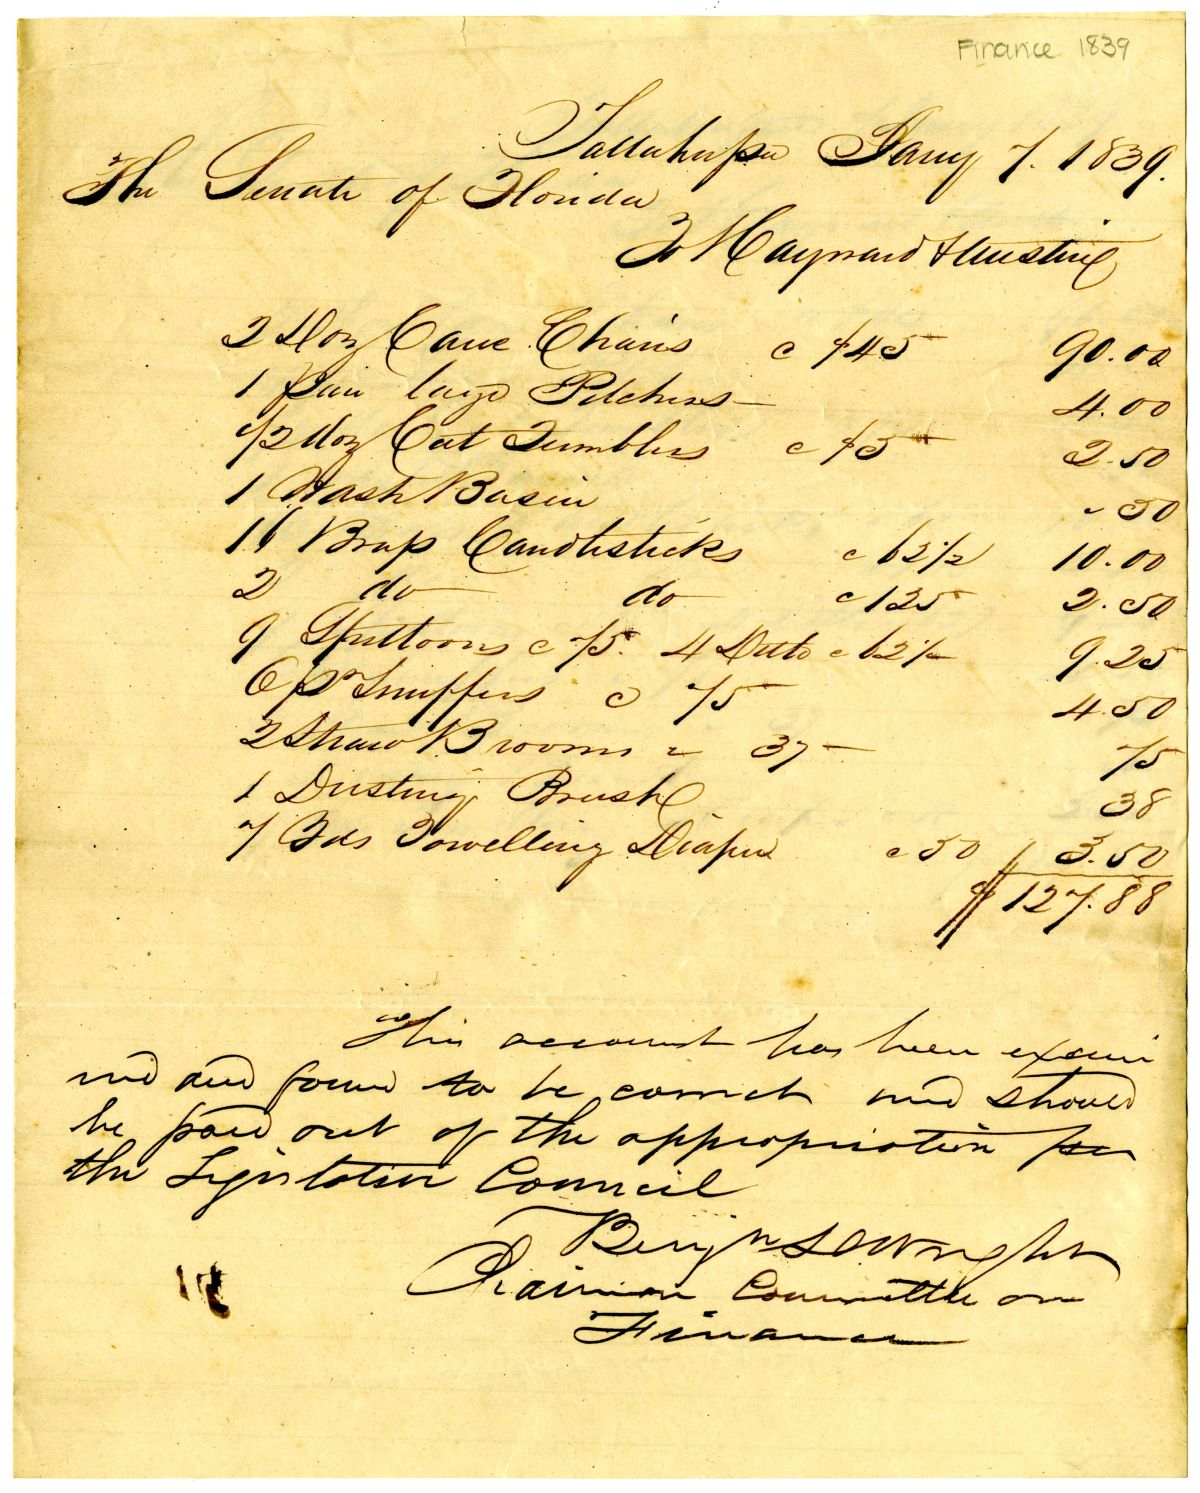 Finance 1839
Tallahassee Jany 7. 1839.
The Senate of Florida
To Hayward & Austin
2 Doz Cane Chairs @ $45 90.00
1 pair large Pitchers 4.00
1/2 doz Cut Tumblers @ $5 2.50
1 Wash Basin 50
16 Brass Candlesticks @ 62½ 10.00
2 do do @ 125 2.50
9 Spittoons @ 75. 4 Ditto @ 62½ 9.25
6 pr Snuffers @ 75 4.50
2 Straw Brooms @ 37 75
1 Dusting Brush 38
7 Yds Towelling Diaper @ 50 3.50
$127.88
This account has been exami
ned and found to be correct and should
be paid out of the appropriation for
the Legislative Council
Benjn D Wright
Chairman Committee on
Finance